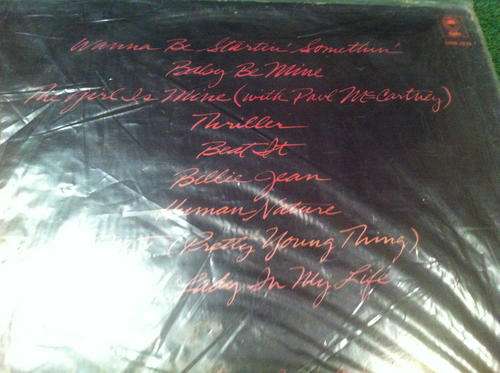 Wanna Be Startin' Somethin'
Baby Be Mine
The Girl Is Mine (with Paul McCartney)
Thriller
Beat It
Billie Jean
Human Nature
(Pretty Young Thing)
Lady In My Life